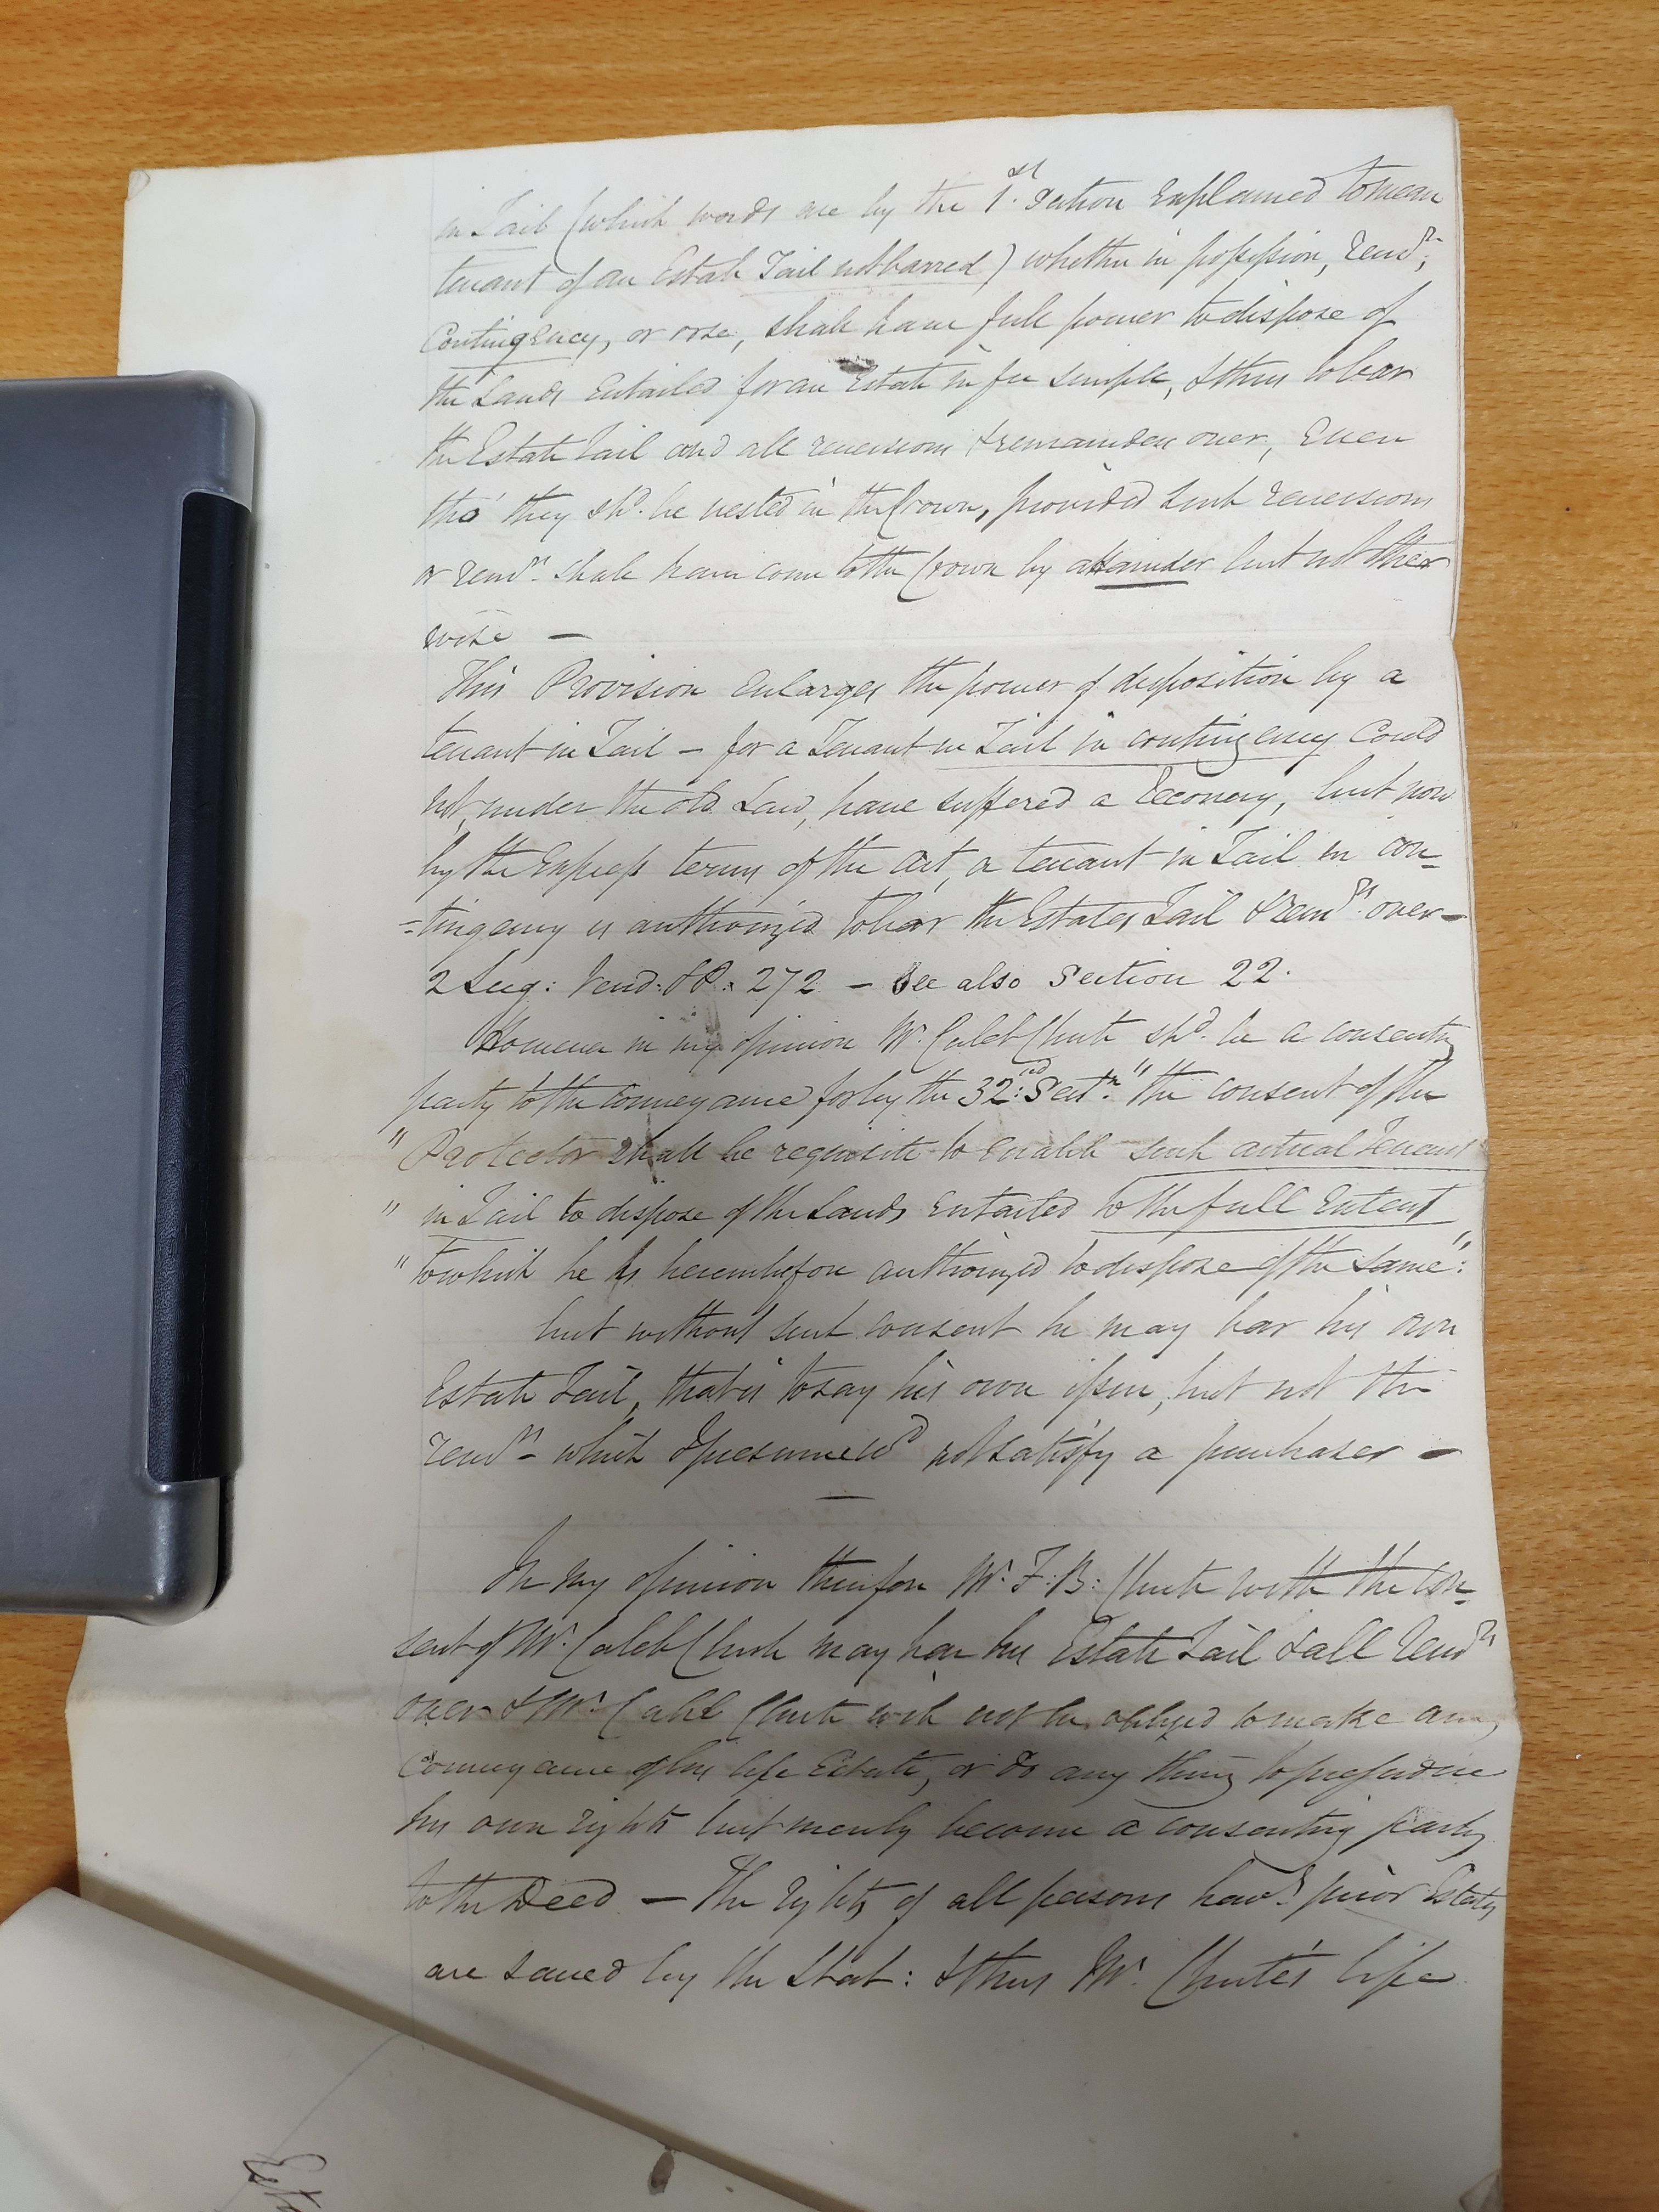 in Tail (which words are by the 1st. Section Explained to mean
tenant of an Estate Tail not barred) whether in possession, remr.,
Contingency, or orse, shall have full power to dispose of
the Lands Entailed for an Estate in fee simple, & thus to bar
the Estate Tail and all reversions & remainders over, Even
tho' they shd. be vested in the Crown, provided such reversions
or remrs. shall have come to the Crown by attainder but not other
wise —
This Provision Enlarges the power of disposition by a
tenant in Tail — for a Tenant in Tail in contingency Could
not, under the old Law, have suffered a Recovery, but now
by the Express terms of the Act, a tenant in Tail in con=
=tingency is authorized to bar the Estates Tail & remrs. over —
2 Sug: Vend: & P: 272 — See also Section 22.
However in my opinion Mr. Caleb Chute shd. be a consenting
party to the conveyance for by the 32nd: Sectn. "the consent of the
" Protector shall be requisite to enable such actual Tenant
" in Tail to dispose of the Lands Entailed to the full Extent
" to which he is hereinbefore authorized to dispose of the same":
but without such consent he may bar his own
Estate Tail, that is to say his own issue, but not the
remrs — which I presume wd not satisfy a purchaser —
In my opinion therefore Mr. F: B: Chute with the con=
sent of Mr. Caleb Chute may bar his Estate Tail & all remrs
over & Mr. Caleb Chute will not be obliged to make any
Conveyance of his life Estate, or do any thing to prejudice
his own rights but merely become a consenting party
to the Deed — The rights of all persons havg. prior Estates
are saved by the Stat: & thus Mr. Chute's life